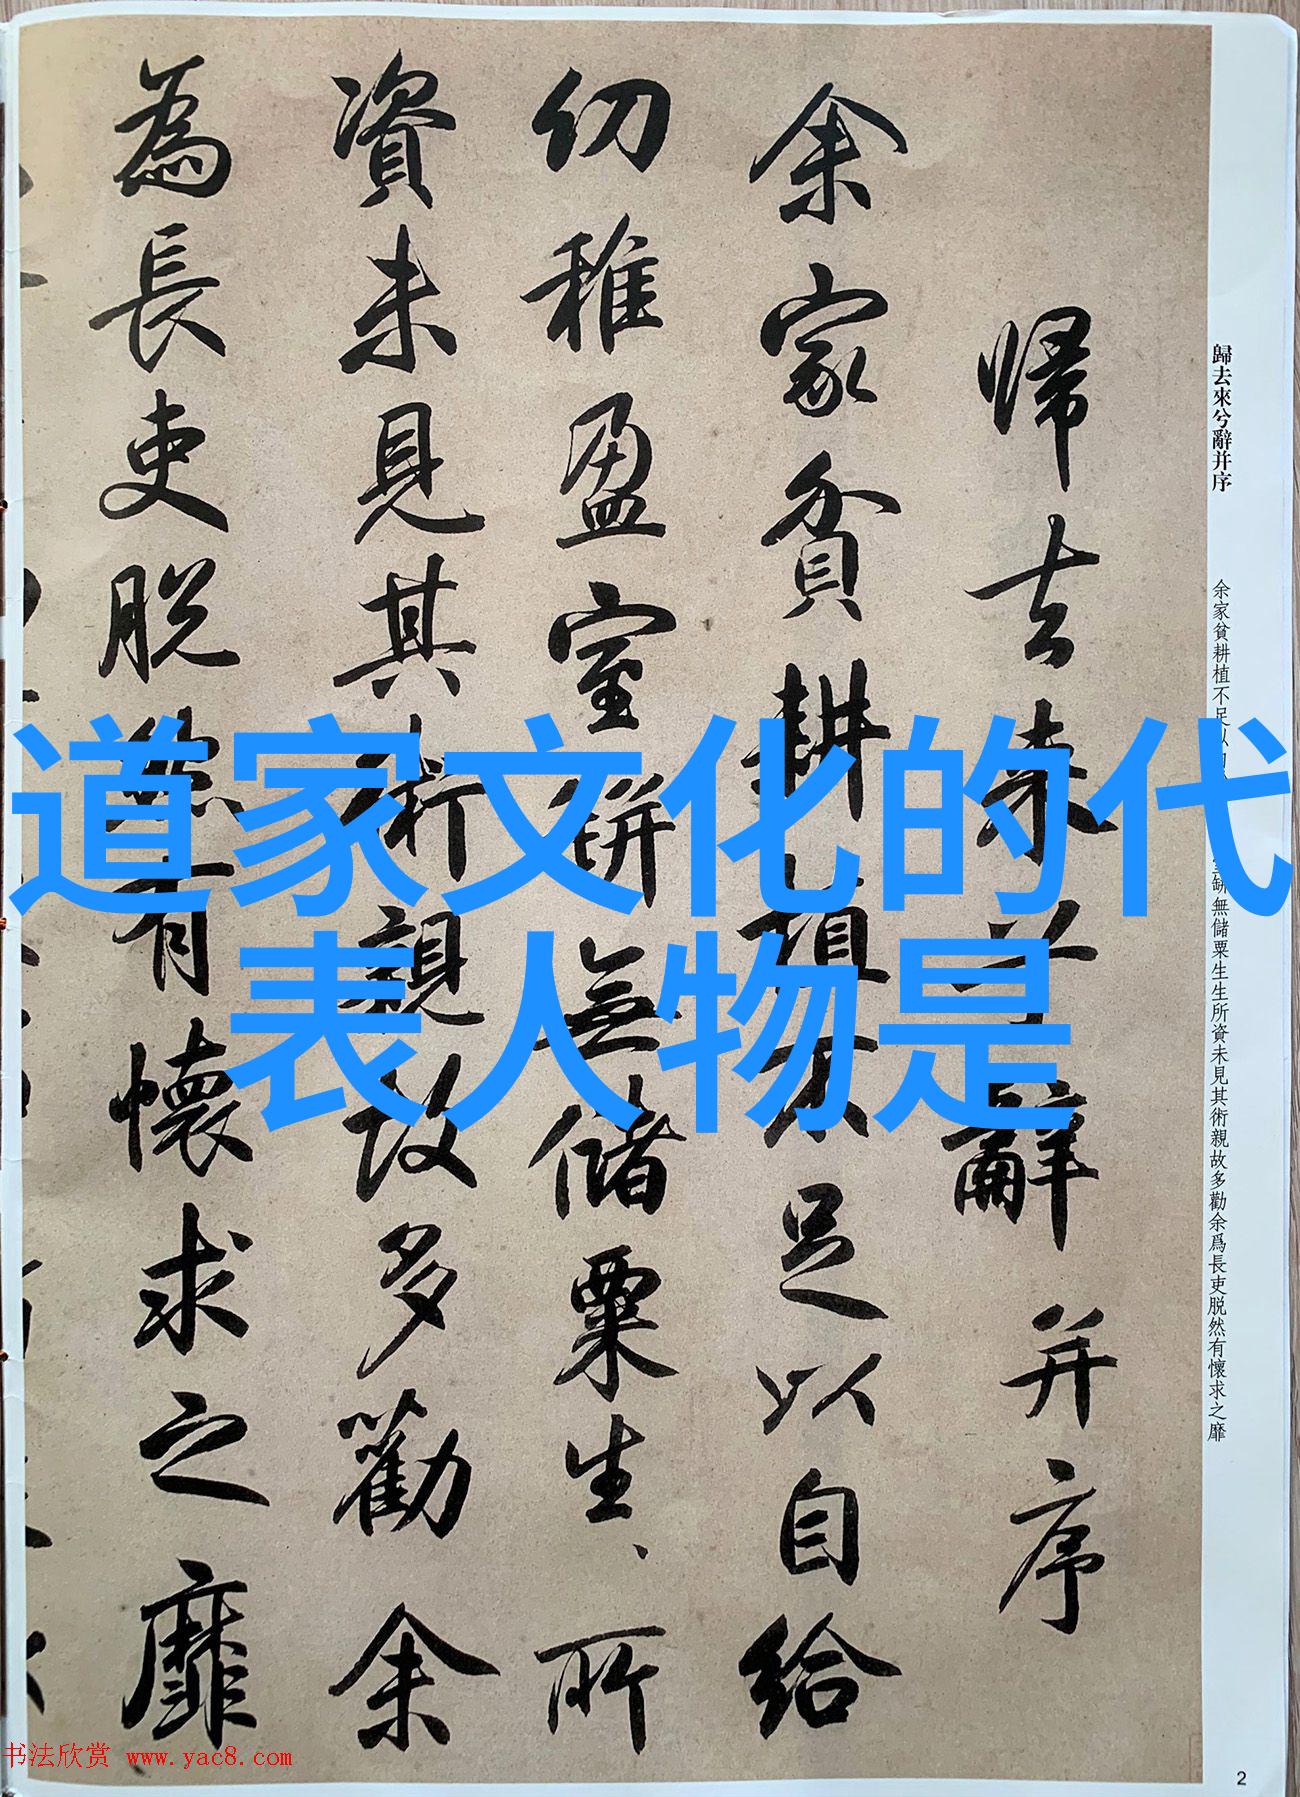 道家文化的代
表人物是
歸去來兮辭并序
余家貧耕植不足以 缾無儲粟生生所資未見其術親故多勸余爲長吏脱然有懷求之靡
歸去来兮辭并序
余家貧耕植不足以自給
幼稚盈室缾無儲粟生、所
資未見其術親故多勸余
為長吏脱然有懷求之靡
书法欣赏 www.yac8.com
2